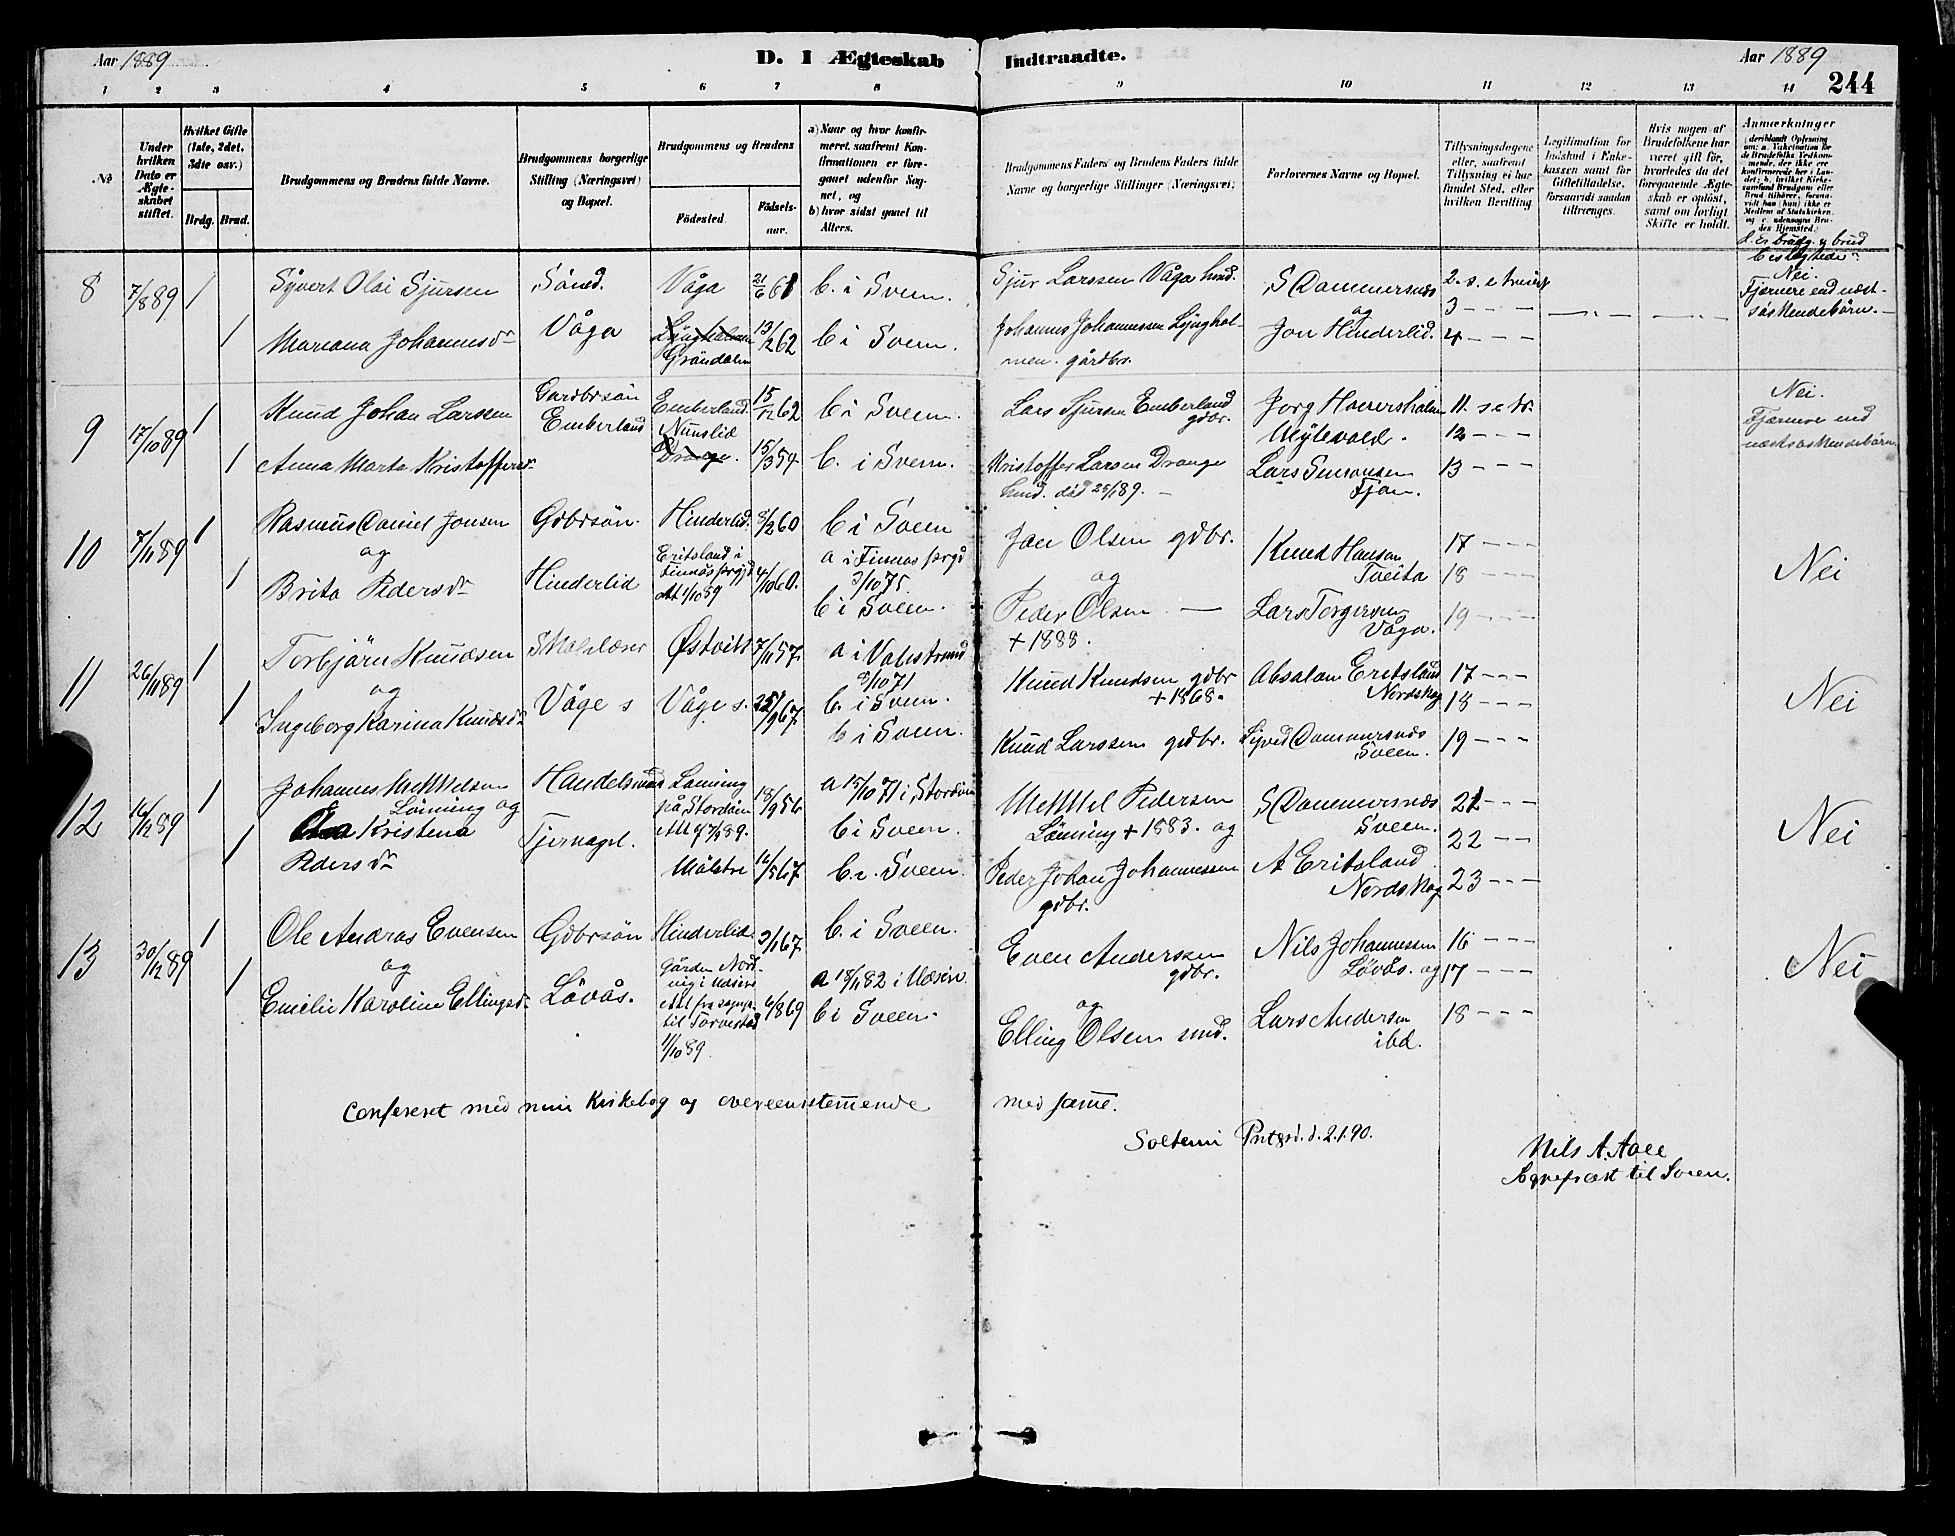 Aar 1889
D. I Ægteskab Indtraadte.
Aar 1889
244
1 2 3 4 5 6 7 8 9 10 11 12 13 14
No
Under hvilken Dato er Ægteskabet stiftet.
Hvilket Gifte (1ste, 2det, 3die osv.)
Brdg. Brud.
Brudgommens og Brudens fulde Navne.
Brudgommens borgerlige Stilling (Næringsvei) og Bopæl.
Brudgommens og Brudens
Fødested.
Fødselsaar.
a) Naar og hvor konfirmeret, saafremt Konfirmationen er foregaaet udenfor Sognet, og
b) hvor sidst gaaet til Alters.
Brudgommens Faders og Brudens Faders fulde Navne og borgerlige Stillinger (Næringsvei)
Forlovernes Navne og Bopæl.
Tillysningsdagene eller, saafremt Tillysning ei har fundet Sted, efter hvilken Bevilling
Legitimation for Indskud i Enkekassen samt for Giftetilladelse, forsaavidt saadan tiltrænges.
Hvis nogen af Brudefolkene har været gift før, hvorledes da det foregaaende Ægteskab er opløst, samt om lovligt Skifte er holdt.
Anmærkninger
8
7/8 89
1
Syvert Olai Sjursen
Sönd.
Våga
21/6 61
b. i Sveen.
Sjur Larssen Våga hmd.
S Dommersnes
2. s. e trinit
Nei.
Fjærnere end næstsöskendebörn.
1
Mariana Johannesdr
Våga
Gröndalen
13/2 62
b i Sveen.
Johannes Johannessen Lyngholmen. gårdbr.
og
Jon Hinderlid.
3 - - -
4 - - -
9
17/10 89
1
Knud Johan Larssen
Gardbrsön
Emberland
Emberland.
15/12 62
b i Sveen.
Lars Sjursen Emberland
gdbr.
11. s e tr.
12 - - -
Nei.
Fjærnere end
næstsöskendebörn
1
Anna Marta Kristoffersdr
Nunslid
15/3 54
b. i Sveen.
Kristoffer Larsen Drange
hmd. död 25/1 89.
Lars Simonsen
Fjon.
13 - - -
10
7/11 89
1
Rasmus Daniel Jonsen
og
Gdbrsön.
Hinderlid.
8/2 60
b i Sveen
Jon Olsen gdbr.
og
Knud Hansen
Tveita
17 - - -
18 - - -
Nei
1
Brita Pedersdr
Hinderlid
Eritsland i
Finnås prgjd
Att 4/10 89
4/10 60.
a i Finnås prgj
3/10 75.
b i Sveen.
Peder Olsen —
+ 1888.
Lars Torgersen
Våga.
19 - - -
11
26/11 89
1
Torbjörn Knudsen
og
Skolelærer
Østveit
7/11 57.
a i Valestrand
8/10 71
b. i Sveen.
Knud Knudsen gdbr
+ 1868.
Absalon Eritsland
Nordskog
17 - - -
18 - - -
Nei
1
Ingeborg Karina Knudsdr
Våge s
Våge s.
25/9 67.
b i Sveen.
Knud Larssen gdbr.
Syvert Dommersnes
Sveen.
19 - - -
12
16/12 89
1
Johannes Mikkelsen
Lönning og
Handelsmand
Lönning
på Stordöen
18/9 56
a 15/10 71 i Stordöen
b i Sveen.
Mikkel Pedersen
Lönning + 1883. og
S Dommersnes
Sveen.
21 - - -
22 - - -
Nei
1
Kristena
Pedersdr
Tjernagel.
Målstre
16/5 67
b. i. Sveen.
Peder Johan Johannessen
gdbr.
A Eritsland
Nordskog
23 - - -
13
30/12 89
1
Ole Andras Evensen
og
Gdbrsön
Hinderlid.
3/1 67.
b. i Sveen.
Even Anderssen
gdbr.
og
Nils Johannessen
Lövås. og
16 - - -
17 - - -
Nei
1
Emelie Karoline Ellingsdr
Lövås.
Gården
til Torvestad
1/10 89.
6/8 69
b i Sveen.
Elling Olsen smd.
Lars Andersen
ibd.
18 - - -
Confereret med min Kirkebog og overeensstemmende med samme.
Prstgrd. d. 2.1.90.
Nils A. Aall
Sognepræst til Sveen.